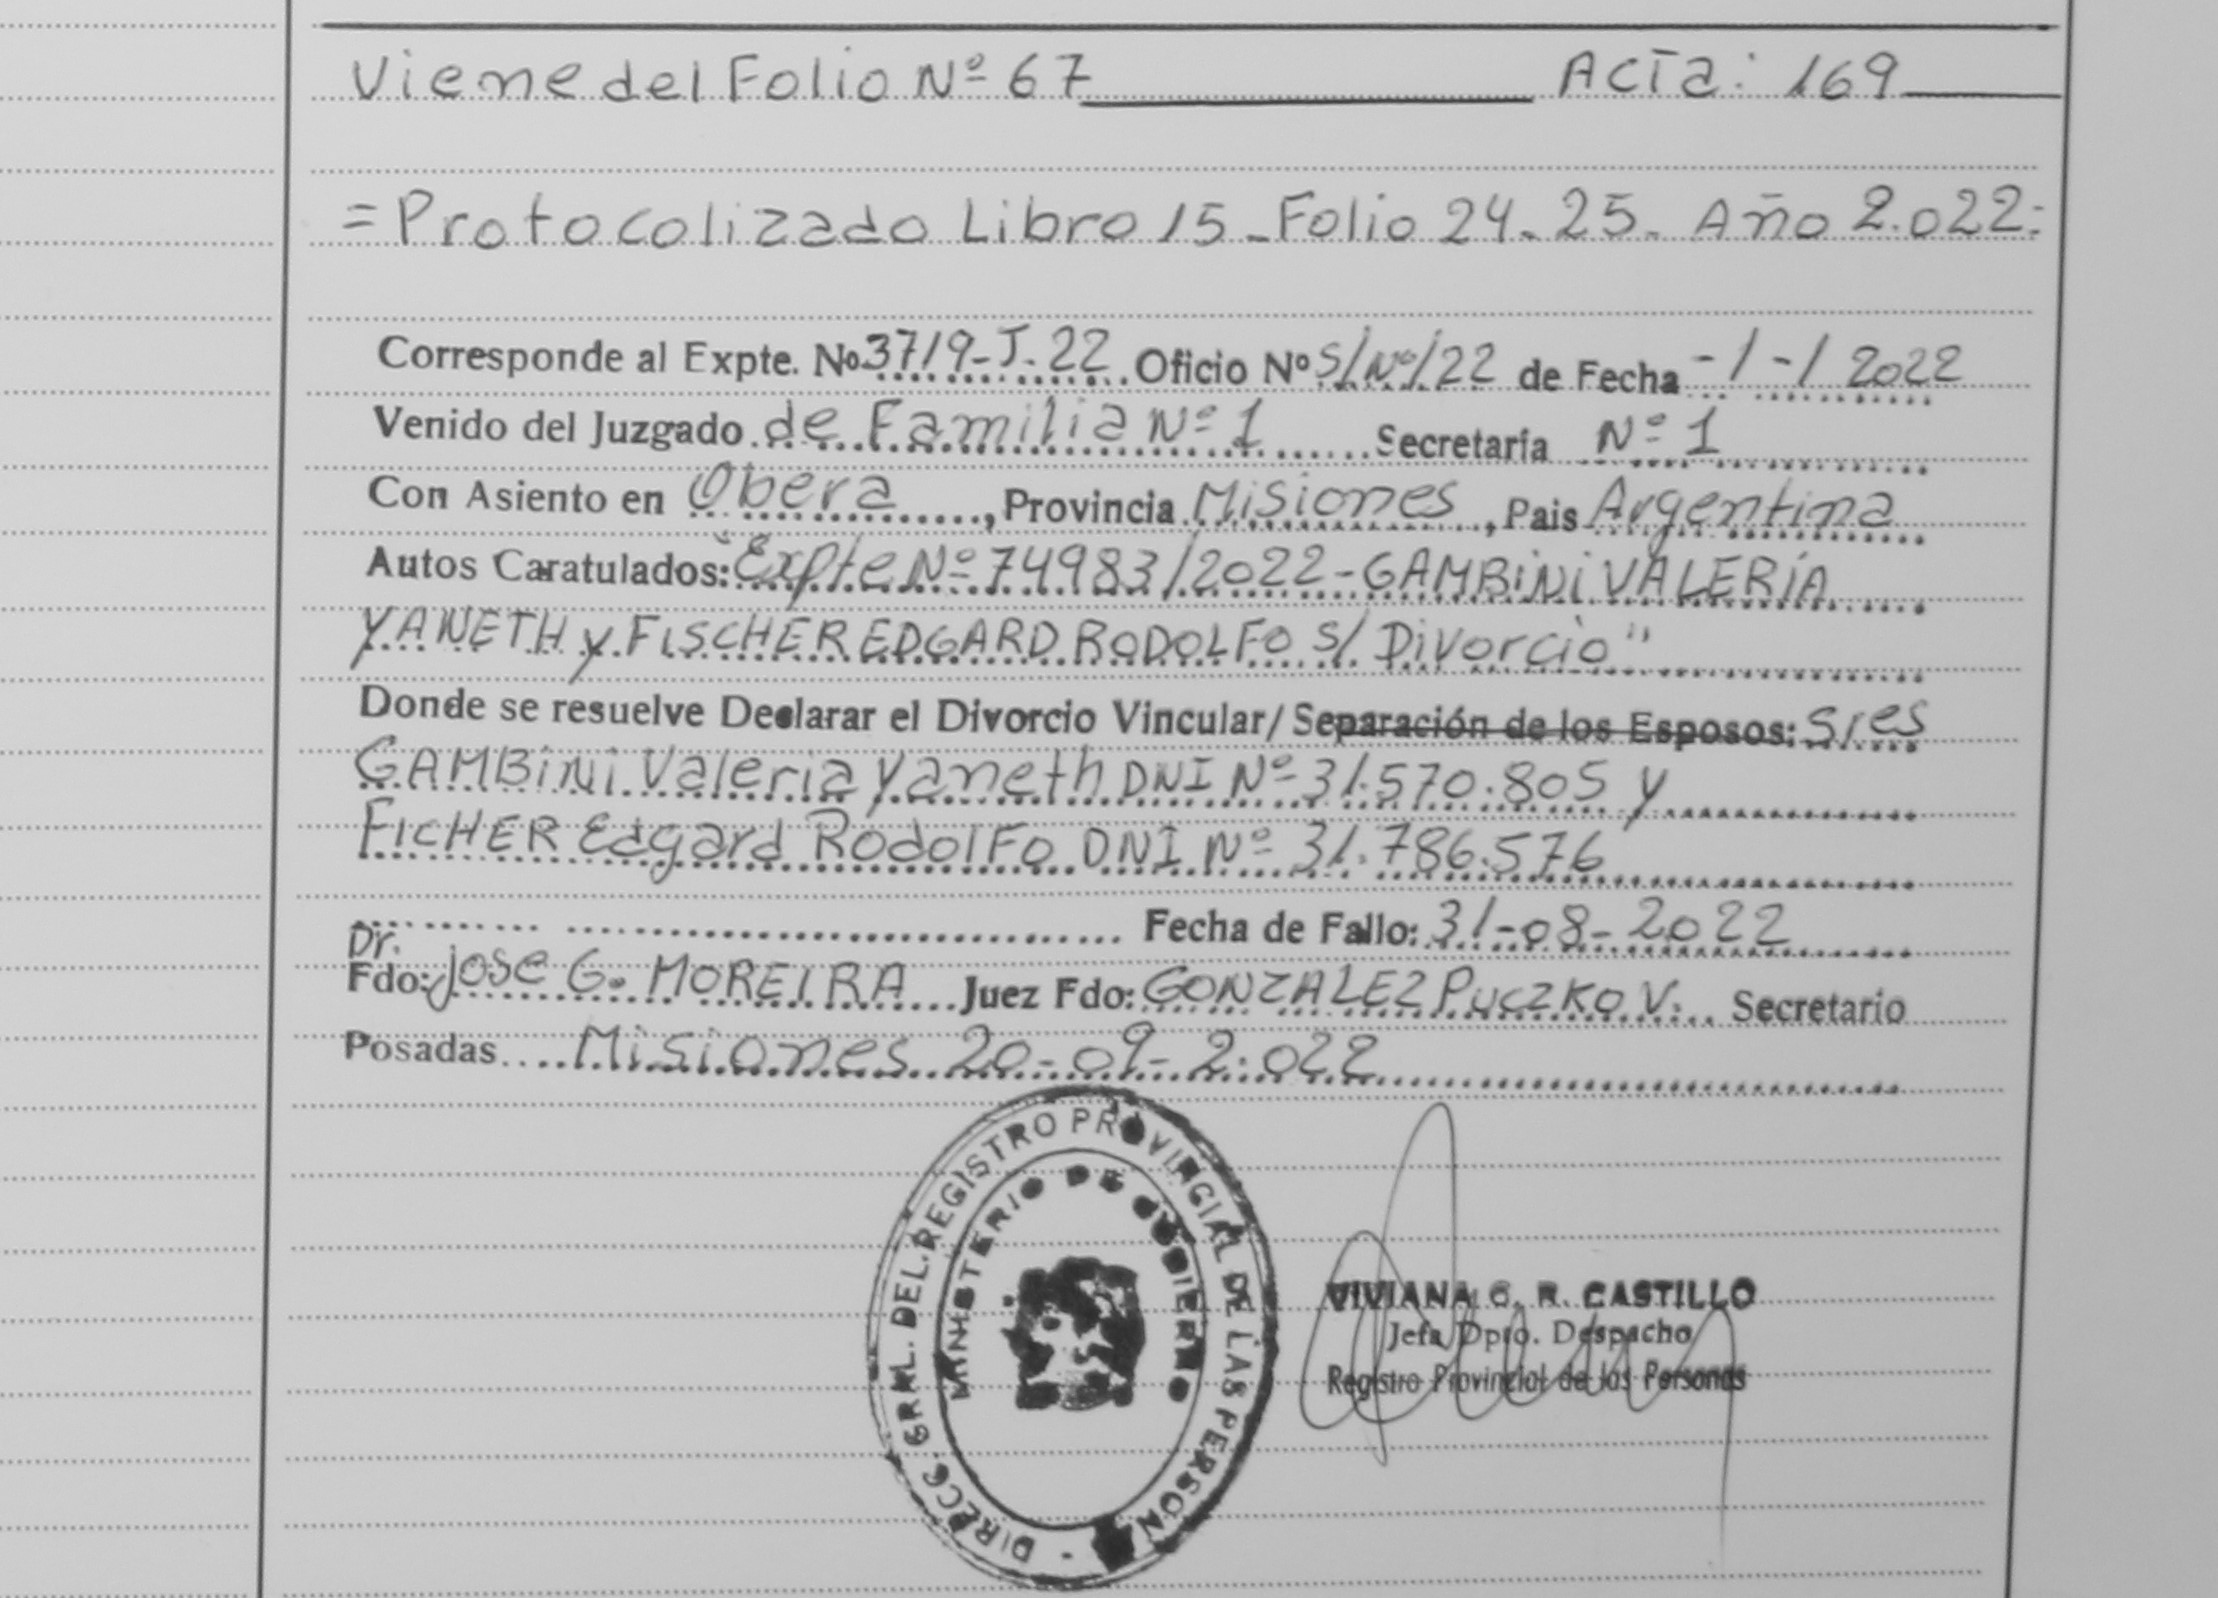 Viene del Folio Nº 67 Acta: 169
= Protocolizado Libro 15 - Folio 24 - 25 - Año 2.022:
Corresponde al Expte. No 3719-J-22 Oficio Nº S/Nº/22 de Fecha - / - / 2022
Venido del Juzgado de Familia Nº 1 Secretaría Nº 1
Con Asiento en Obera, Provincia Misiones, Pais Argentina
Autos Caratulados: "Expte Nº 74983/2022 - GAMBiNi VALERÍA
YANETH y FiSCHER EDGARD RODOLFO S/ Divorcio"
Donde se resuelve Declarar el Divorcio Vincular/ Separación de los Esposos: Sres
GAMBiNi Valeria Yaneth DNI Nº 31.570.805 y
FICHER Edgard Rodolfo DNI Nº 31.786.576
Fecha de Fallo: 31-08-2022
Dr.
Fdo: Jose G. MOREIRA Juez Fdo: GONZALEZ PUCZKO V. Secretario
Posadas Misiones 20-09-2.022
DIRECC. GRAL. DEL REGISTRO PROVINCIAL DE LAS PERSON
MINISTERIO DE GOBIERNO
VIVIANA G. R. CASTILLO
Jefa Dpto. Despacho
Registro Provincial de las Personas